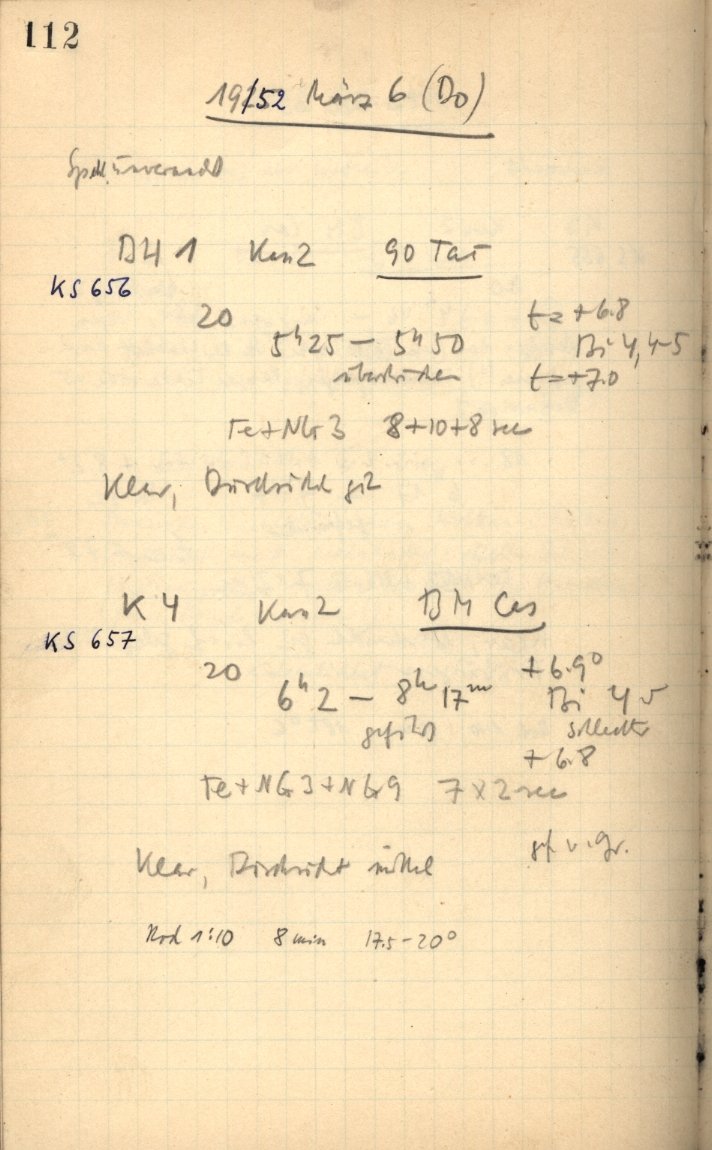 112
19/52 März 6 (Do)
Spalt unverändert
B4 1 Kam2 90 Tau
KS 656
20 t = +6.8
5h25 — 5h50 Bi 4,4-5
überstrichen t = +7.0
Fe+NG3 8+10+8 sec
Klar, Durchsicht gut
K4 Kam2 BM Cas
KS 657
20 +6.9°
6h2 — 8h17m Bi 4-5
geführt schlechter
+6.8
Fe+NG3+NG9 7x2 sec
gf. v. Gr.
Klar, Durchsicht mittel
Rod 1:10 8 min 17.5-20°